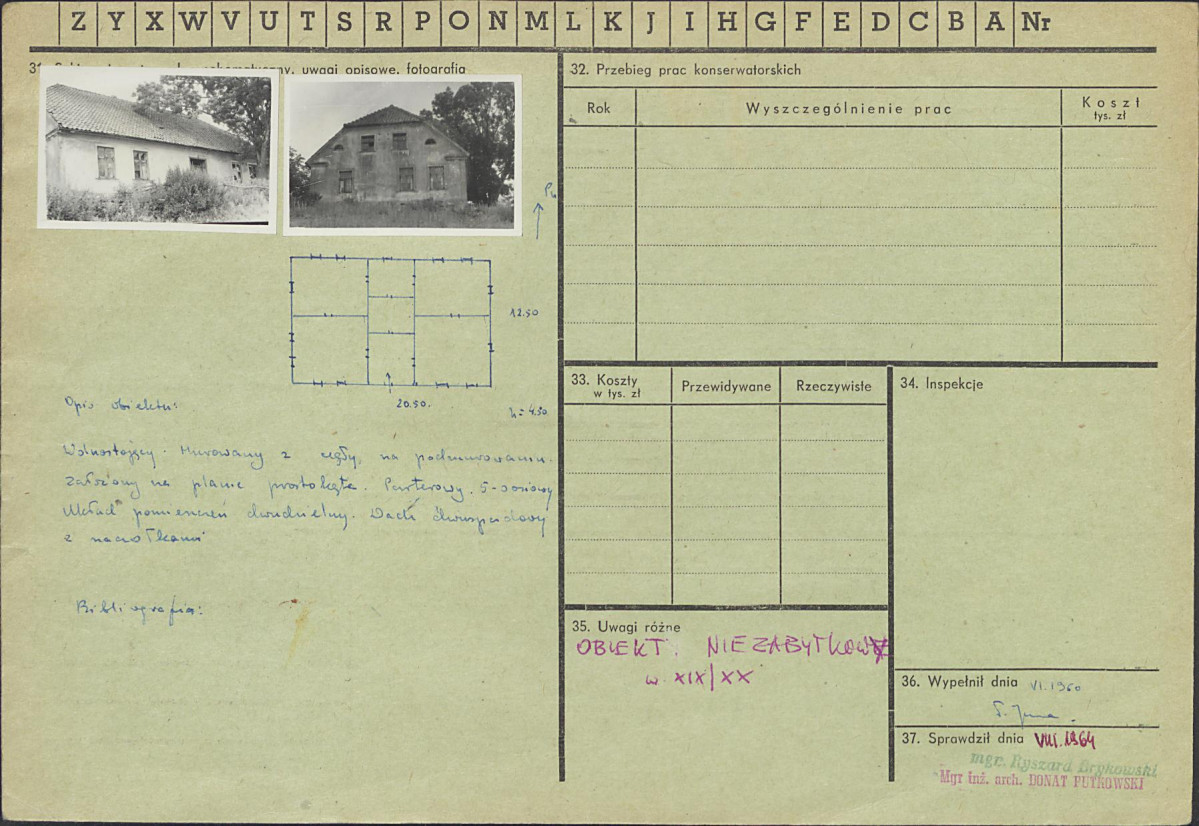 Z Y X W V U T S R P O N M L K J I H G F E D C B A Nr
31. uwagi opisowe, fotografia
Pn
12.50
20.50.
h = 4.50
Opis obiektu:
Wolnostojący. Murowany z cegły, na podmurowaniu.
Założony na planie prostokąta. Parterowy. 5-osiowy
Układ pomieszczeń dwudzielny. Dach dwuspadowy
z naczółkami
Bibliografia:
32. Przebieg prac konserwatorskich
Rok
Wyszczególnienie prac
Koszt
tys. zł
33. Koszty
w tys. zł
Przewidywane
Rzeczywiste
34. Inspekcje
35. Uwagi różne
OBIEKT. NIEZABYTKOWY
w. XIX/XX
36. Wypełnił dnia VI.1960
37. Sprawdził dnia VIII.1964
mgr. Ryszard Brykowski
Mgr inż. arch. DONAT PUTKOWSKI